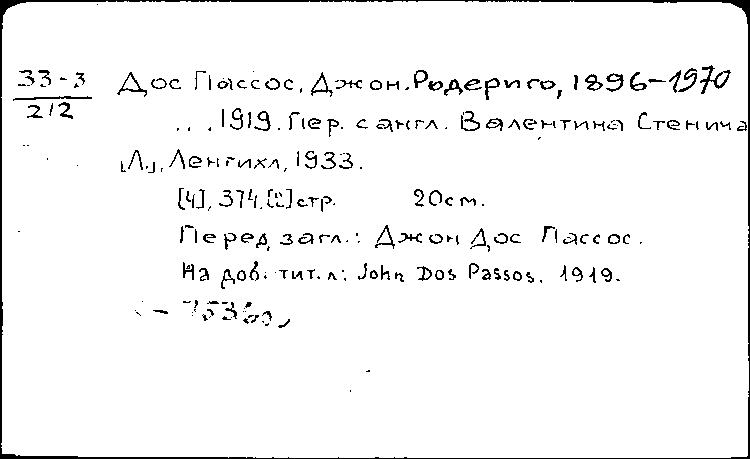 33-3
212
Дос Пассос, Джон. Родериго, 1896-1970
... 1919. Пер. с англ. Валентина Стенича
[Л.], Ленгихл, 1933.
[4], 374, [2] стр. 20 см.
Перед загл.: Джон Дос Пассос.
На доб. тит. л: John Dos Passos. 1919.